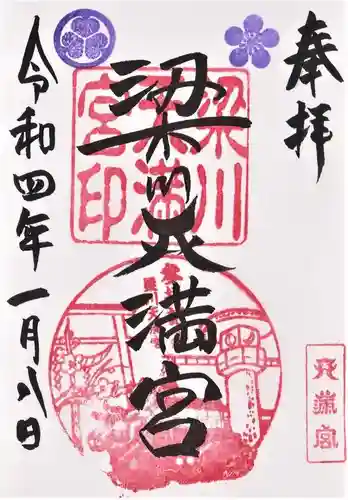 奉拝
梁川天満宮
梁川天満宮印
天満宮
令和四年一月八日